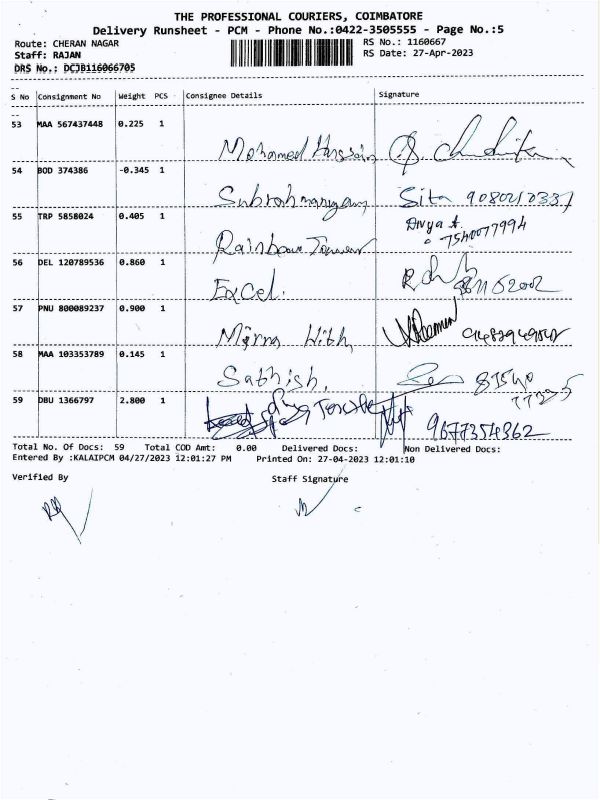 THE PROFESSIONAL COURIERS, COIMBATORE
Delivery Runsheet - PCM - Phone No.:0422-3505555 - Page No.:5
Route: CHERAN NAGAR RS No.: 1160667
Staff: RAJAN RS Date: 27-Apr-2023
DRS No.: DCJB116066705
S No Consignment No Weight PCS Consignee Details Signature
53 MAA 567437448 0.225 1
Mohamed Hussain
54 BOD 374386 -0.345 1
Subrahmaniyam Sita
55 TRP 5858024 0.405 1 Divya A.
Rainbow Tower 7540077994
56 DEL 120789536 0.860 1
Excel.
57 PNU 800089237 0.900 1
58 MAA 103353789 0.145 1
Sathish. 87540
59 DBU 1366797 2.800 1
9677354362
Total No. Of Docs: 59 Total COD Amt: 0.00 Delivered Docs: Non Delivered Docs:
Entered By :KALAIPCM 04/27/2023 12:01:27 PM Printed On: 27-04-2023 12:01:10
Verified By Staff Signature